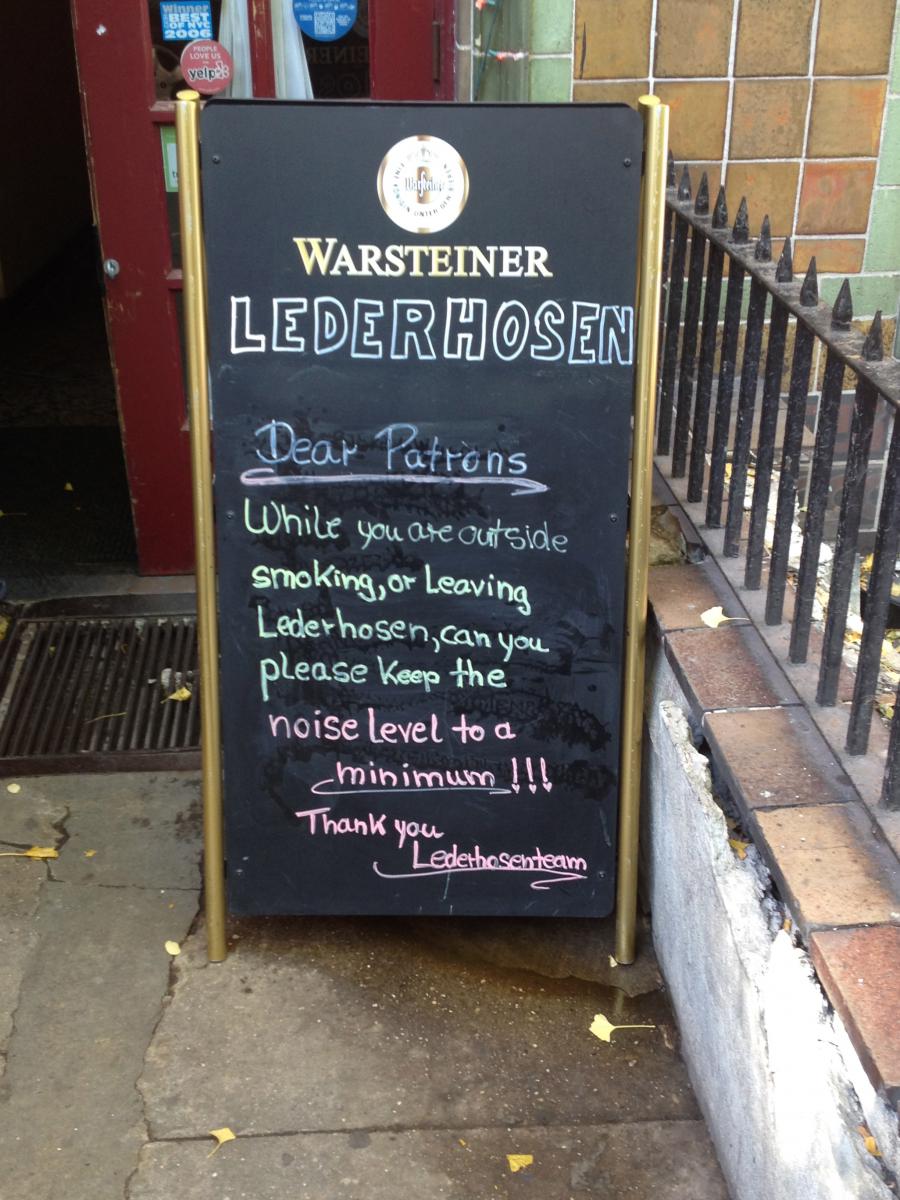 Winner
BEST
OF NYC
2006
PEOPLE
LOVE US
yelp
Warsteiner
WARSTEINER
LEDERHOSEN
Dear Patrons
While you are outside
smoking, or Leaving
Lederhosen, can you
please Keep the
noise level to a
minimum !!!
Thank you
Lederhosenteam